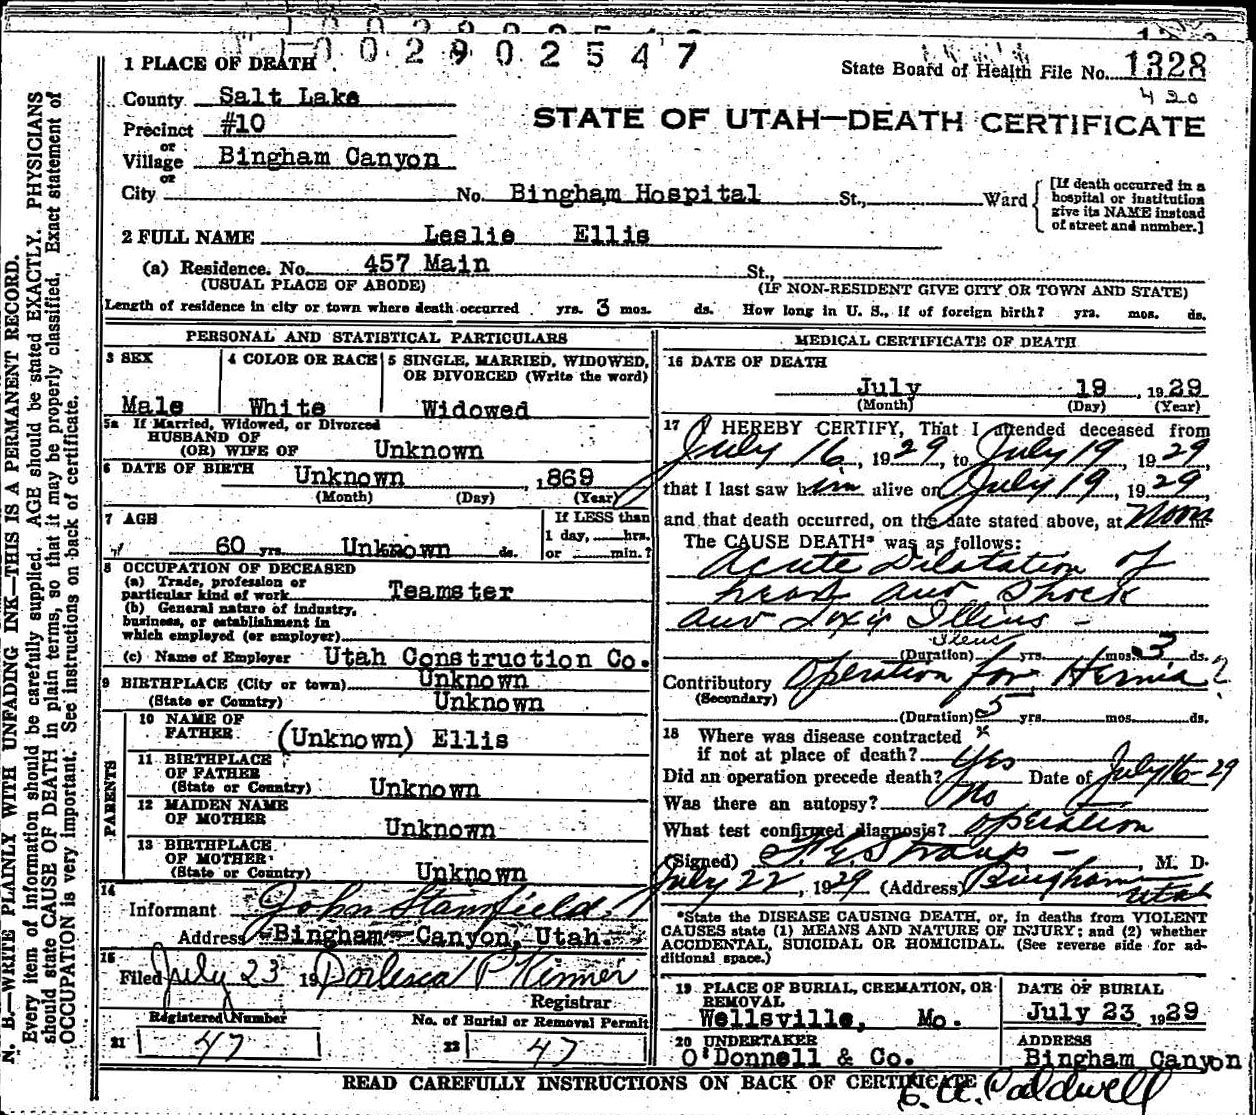 1 0 0 2 9 0 2 5 4 7
1 PLACE OF DEATH
State Board of Health File No. 1328
420
County Salt Lake
STATE OF UTAH—DEATH CERTIFICATE
Precinct #10
or
Village Bingham Canyon
or
City No. Bingham Hospital St., Ward
[If death occurred in a
hospital or institution
give its NAME instead
of street and number.]
2 FULL NAME Leslie Ellis
(a) Residence. No. 457 Main St.,
(USUAL PLACE OF ABODE) (IF NON-RESIDENT GIVE CITY OR TOWN AND STATE)
Length of residence in city or town where death occurred yrs. 3 mos. ds. How long in U. S., if of foreign birth? yrs. mos. ds.
PERSONAL AND STATISTICAL PARTICULARS
3 SEX
Male
4 COLOR OR RACE
White
5 SINGLE, MARRIED, WIDOWED,
OR DIVORCED (Write the word)
Widowed
5a If Married, Widowed, or Divorced
HUSBAND OF
(OR) WIFE OF Unknown
6 DATE OF BIRTH Unknown , 1869
(Month) (Day) (Year)
7 AGE
60 yrs. Unknown ds.
If LESS than
1 day, hrs.
or min.?
8 OCCUPATION OF DECEASED
(a) Trade, profession or
particular kind of work Teamster
(b) General nature of industry,
business, or establishment in
which employed (or employer)
(c) Name of Employer Utah Construction Co.
9 BIRTHPLACE (City or town) Unknown
(State or Country) Unknown
PARENTS
10 NAME OF
FATHER (Unknown) Ellis
11 BIRTHPLACE
OF FATHER
(State or Country) Unknown
12 MAIDEN NAME
OF MOTHER Unknown
13 BIRTHPLACE
OF MOTHER
(State or Country) Unknown
14
Informant John Stanfield
Address Bingham Canyon, Utah.
15
Filed July 23 19
Registrar
Registered Number No. of Burial or Removal Permit
21 47 22 47
MEDICAL CERTIFICATE OF DEATH
16 DATE OF DEATH
July 19 , 1929
(Month) (Day) (Year)
17 I HEREBY CERTIFY, That I attended deceased from
July 16, 1929, to July 19, 1929,
that I last saw him alive on July 19, 1929,
and that death occurred, on the date stated above, at Noon m.
The CAUSE DEATH* was as follows:
Acute Dilatation of
heart and Shock
and Toxic Illius -
Ileus
(Duration) yrs. mos. 3 ds.
Contributory Operation for Hernia ?
(Secondary)
(Duration) 5 yrs. mos. ds.
18 Where was disease contracted
if not at place of death?
Did an operation precede death? Yes Date of July 16-29
Was there an autopsy? No
What test confirmed diagnosis? operation
(Signed) F. E. Straup - M. D.
July 22, 1929 (Address) Bingham
Utah
*State the DISEASE CAUSING DEATH, or, in deaths from VIOLENT
CAUSES state (1) MEANS AND NATURE OF INJURY; and (2) whether
ACCIDENTAL, SUICIDAL OR HOMICIDAL. (See reverse side for ad-
ditional space.)
19 PLACE OF BURIAL, CREMATION, OR
REMOVAL
Wellsville, Mo.
DATE OF BURIAL
July 23 1929
20 UNDERTAKER
O'Donnell & Co.
ADDRESS
Bingham Canyon
READ CAREFULLY INSTRUCTIONS ON BACK OF CERTIFICATE
E. A. Caldwell
N. B.—WRITE PLAINLY WITH UNFADING INK—THIS IS A PERMANENT RECORD.
Every item of information should be carefully supplied. AGE should be stated EXACTLY. PHYSICIANS
should state CAUSE OF DEATH in plain terms, so that it may be properly classified. Exact statement of
OCCUPATION is very important. See instructions on back of certificate.